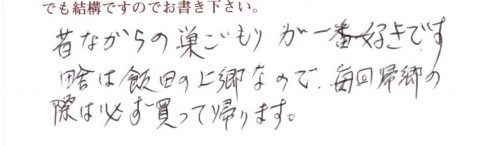 でも結構ですのでお書き下さい。
昔ながらの巣ごもりが一番好きです
田舎は飯田の上郷なので、毎回帰郷の
際は必ず買って帰ります。